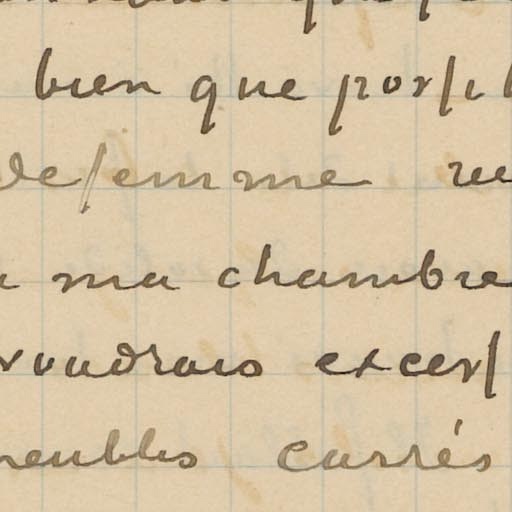 bien que possib
de femme
ma chambre
voudrais excess
meubles carrés